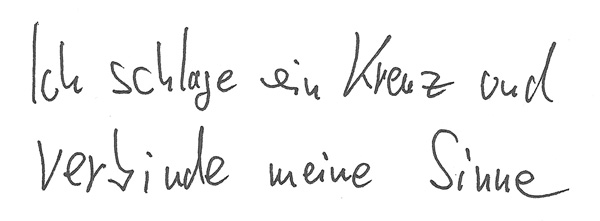 Ich schlage ein Kreuz und
verbinde meine Sinne